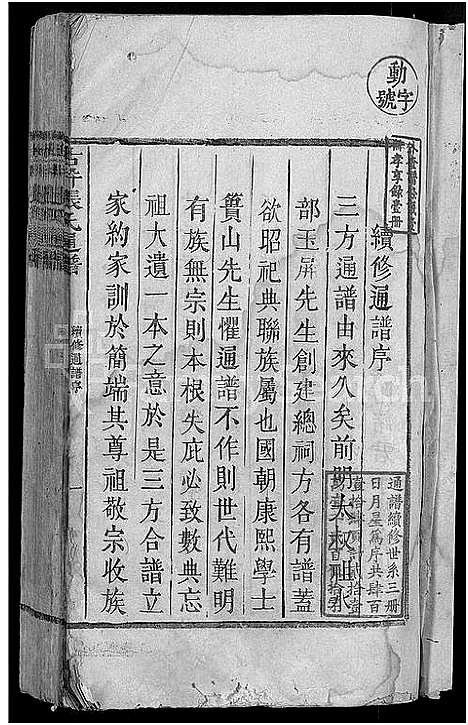 動字號
續修通譜序
三方通譜由來久矣前明太叔祖水
部玉屏先生創建總祠方各有譜蓋
欲昭祀典聯族屬也國朝康熙學士
簣山先生懼通譜不作則世代難明
有族無宗則本根失庇必致數典忘
祖大遺一本之意於是三方合譜立
家約家訓於簡端其尊祖敬宗收族
通譜續修世系三册
日月星為序共肆百
張氏通譜
續修通譜序
一